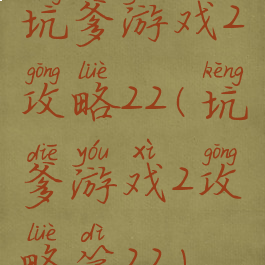 坑爹游戏2
gōng lüè kēng
攻略22(坑
diē yóu xì gōng
爹游戏2攻
lüè dì
略第22)